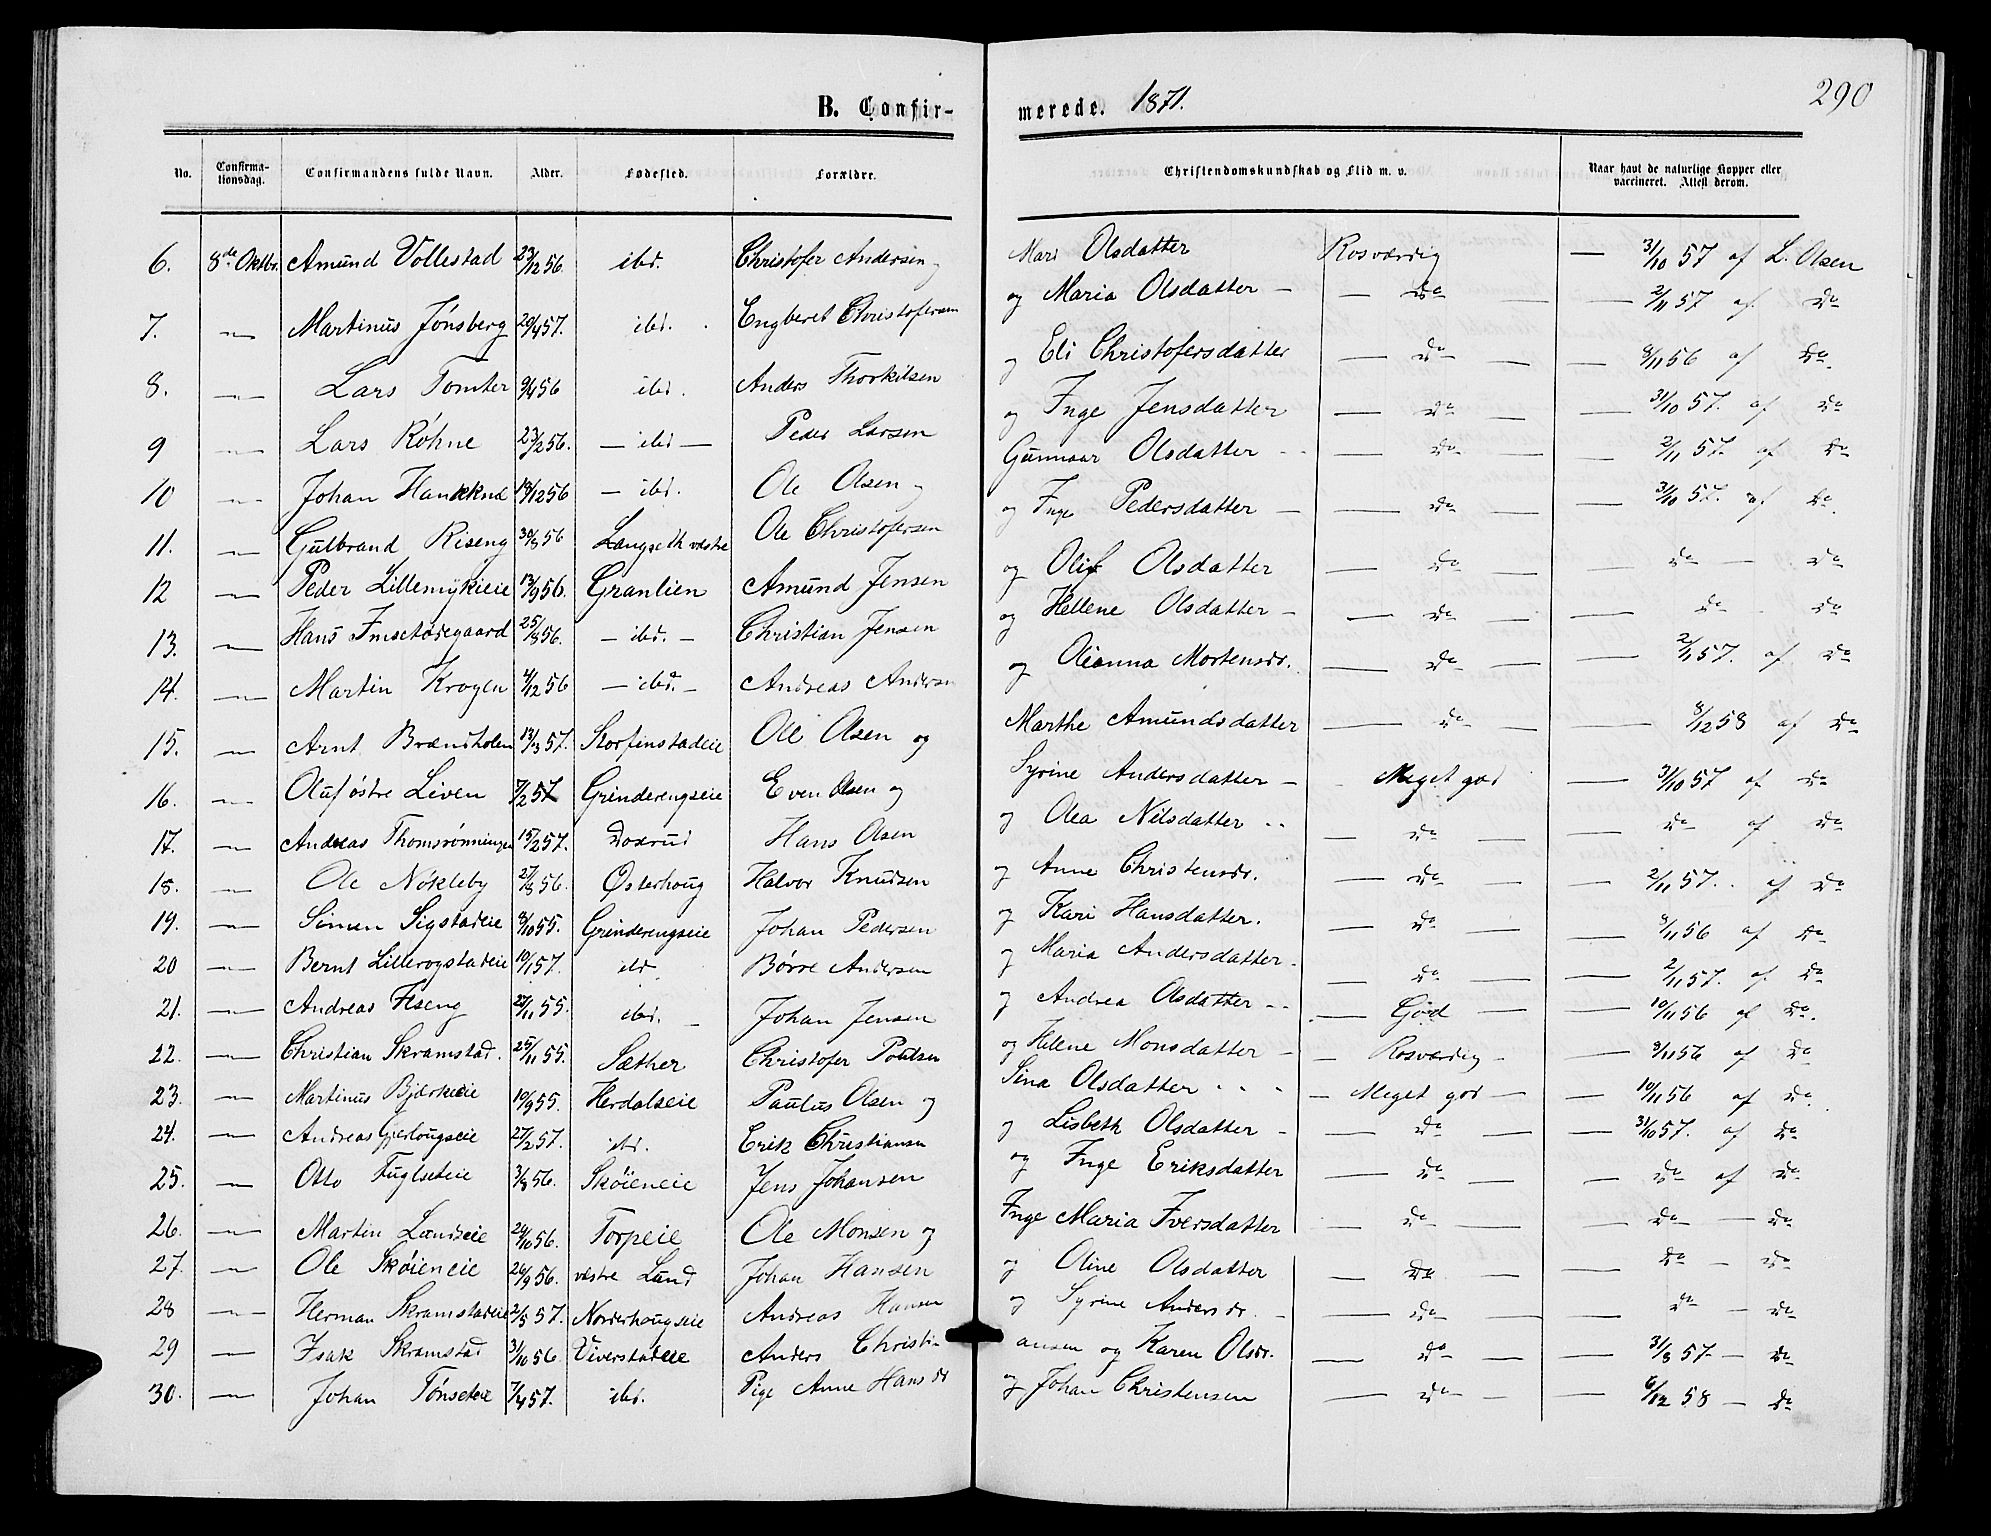 290
B. Confir- merede. 1871.
No. Confirma-tionsdag. Confirmandens fulde Navn. Alder. Fødested. Forældre. Christendomskundskab og Flid m. v. Naar havt de naturlige Kopper eller vaccineret. Attest derom.
6. 8de Oktbr. Amund Vollestad 23/12 56. ibd. Christofer Andersen og Mari Olsdatter Rosværdig — 31/10 57 af L. Olsen
7. —"— Martinus Jönsberg 20/4 57. ibd. Engbret Christofersen og Maria Olsdatter — — do — — 2/11 57 af do
8. —"— Lars Tomter 9/4 56 ibd. Anders Thorkilsen og Eli Christofersdatter — do — — 8/11 56 af do.
9 —"— Lars Röhne 23/2 56. — ibd — Peder Larsen og Inge Jensdatter — do — — 31/10 57. af do
10 —"— Johan 18/12 56 — ibd. Ole Olsen og Gunnaar Olsdatter — do — — 2/11 57. af do
11. —"— Gulbrand Riseng 30/8 56 Langseth vestre Ole Christofersen og Inge Pedersdatter — — do — — 31/10 57. af do.
12 —"— Peder Lillemykieie 13/9 56. Granlien Amund Jensen og Olif Olsdatter — do — do — do
13. —"— Hans Imsetödegaard 25/8 56. — ibd. — Christian Jensen og Hellene Olsdatter — — do — — do - do
14. —"— Martin Krogen 4/12 56 — ibd. — Andreas Andersen og Oleanna Mortensdr. — do — — 2/11 57. af do
15. —"— Arnt Brændholen 13/3 57. Storfinstadeie Ole Olsen og Marthe Amundsdatter — do — — 8/12 58 af do
16. —"— Oluf östre Lien 7/2 57 Grinderengseie Even Olsen og Syrine Andersdatter — Meget god — 31/10 57 af do
17. —"— Andreas Thomsrönningen 15/2 57. Hans Olsen og Olea Nilsdatter — do — do af do
18. —"— Ole Nökleby 27/8 56. Østerhoug Halvor Knudsen og Anne Christensdr. — do — — 2/11 57. af do
19. —"— Simen Sigstadeie 8/10 55. Grinderengseie Johan Pedersen og Kari Hansdatter. — do — — 8/11 56 af do
20 —"— Bernt Lillerogstadeie 10/1 57. ibd Börre Andersen og Maria Andersdatter. — do — — 2/11 57. af do
21. —"— Andreas Iseng 28/11 55. ibd. — Johan Jensen og Andrea Olsdatter — God — — 10/11 56 af do.
22. —"— Christian Skramstad. 25/11 55. Sæther Christofer Poulsen og Helene Monsdatter — — Rosværdig — 8/11 56 af do
23. —"— Martinus Bjørkeeie 10/9 55. Herdalseie Paulus Olsen og Sina Olsdatter — Meget god — — 10/11 56 af do.
24. —"— Andreas 27/2 57. ibd. Erik Christiansen og Lisbeth Olsdatter — — do — — 31/10 57. af do
25. —"— Otto Fuglseteie 3/8 56. Skøieneie Jens Johansen og Inge Eriksdatter — do — — do af do
26. —"— Martin Lundseie 24/10 56. Torpeie Ole Monsen og Inge Maria Iversdatter — do — — do — do
27. —"— Ole Skøieneie 26/9 56. vestre Lund Johan Hansen og Oline Olsdatter — do — — do — do
28 —"— Herman Skramstadeie 2/5 57. Norderhougseie Andreas Hansen og Syrine Andersdr. — — do — — do — do
29 —"— Isak Skramstad 31/10 56. Viverstadeie Anders Christi- ansen og Karen Olsdr. — do — — 31/8 57 — do
30. —"— Johan Tönseteie 7/4 57. ibd. Pige Anne Hansdr og Johan Christensen — do — — 6/12 58 — do